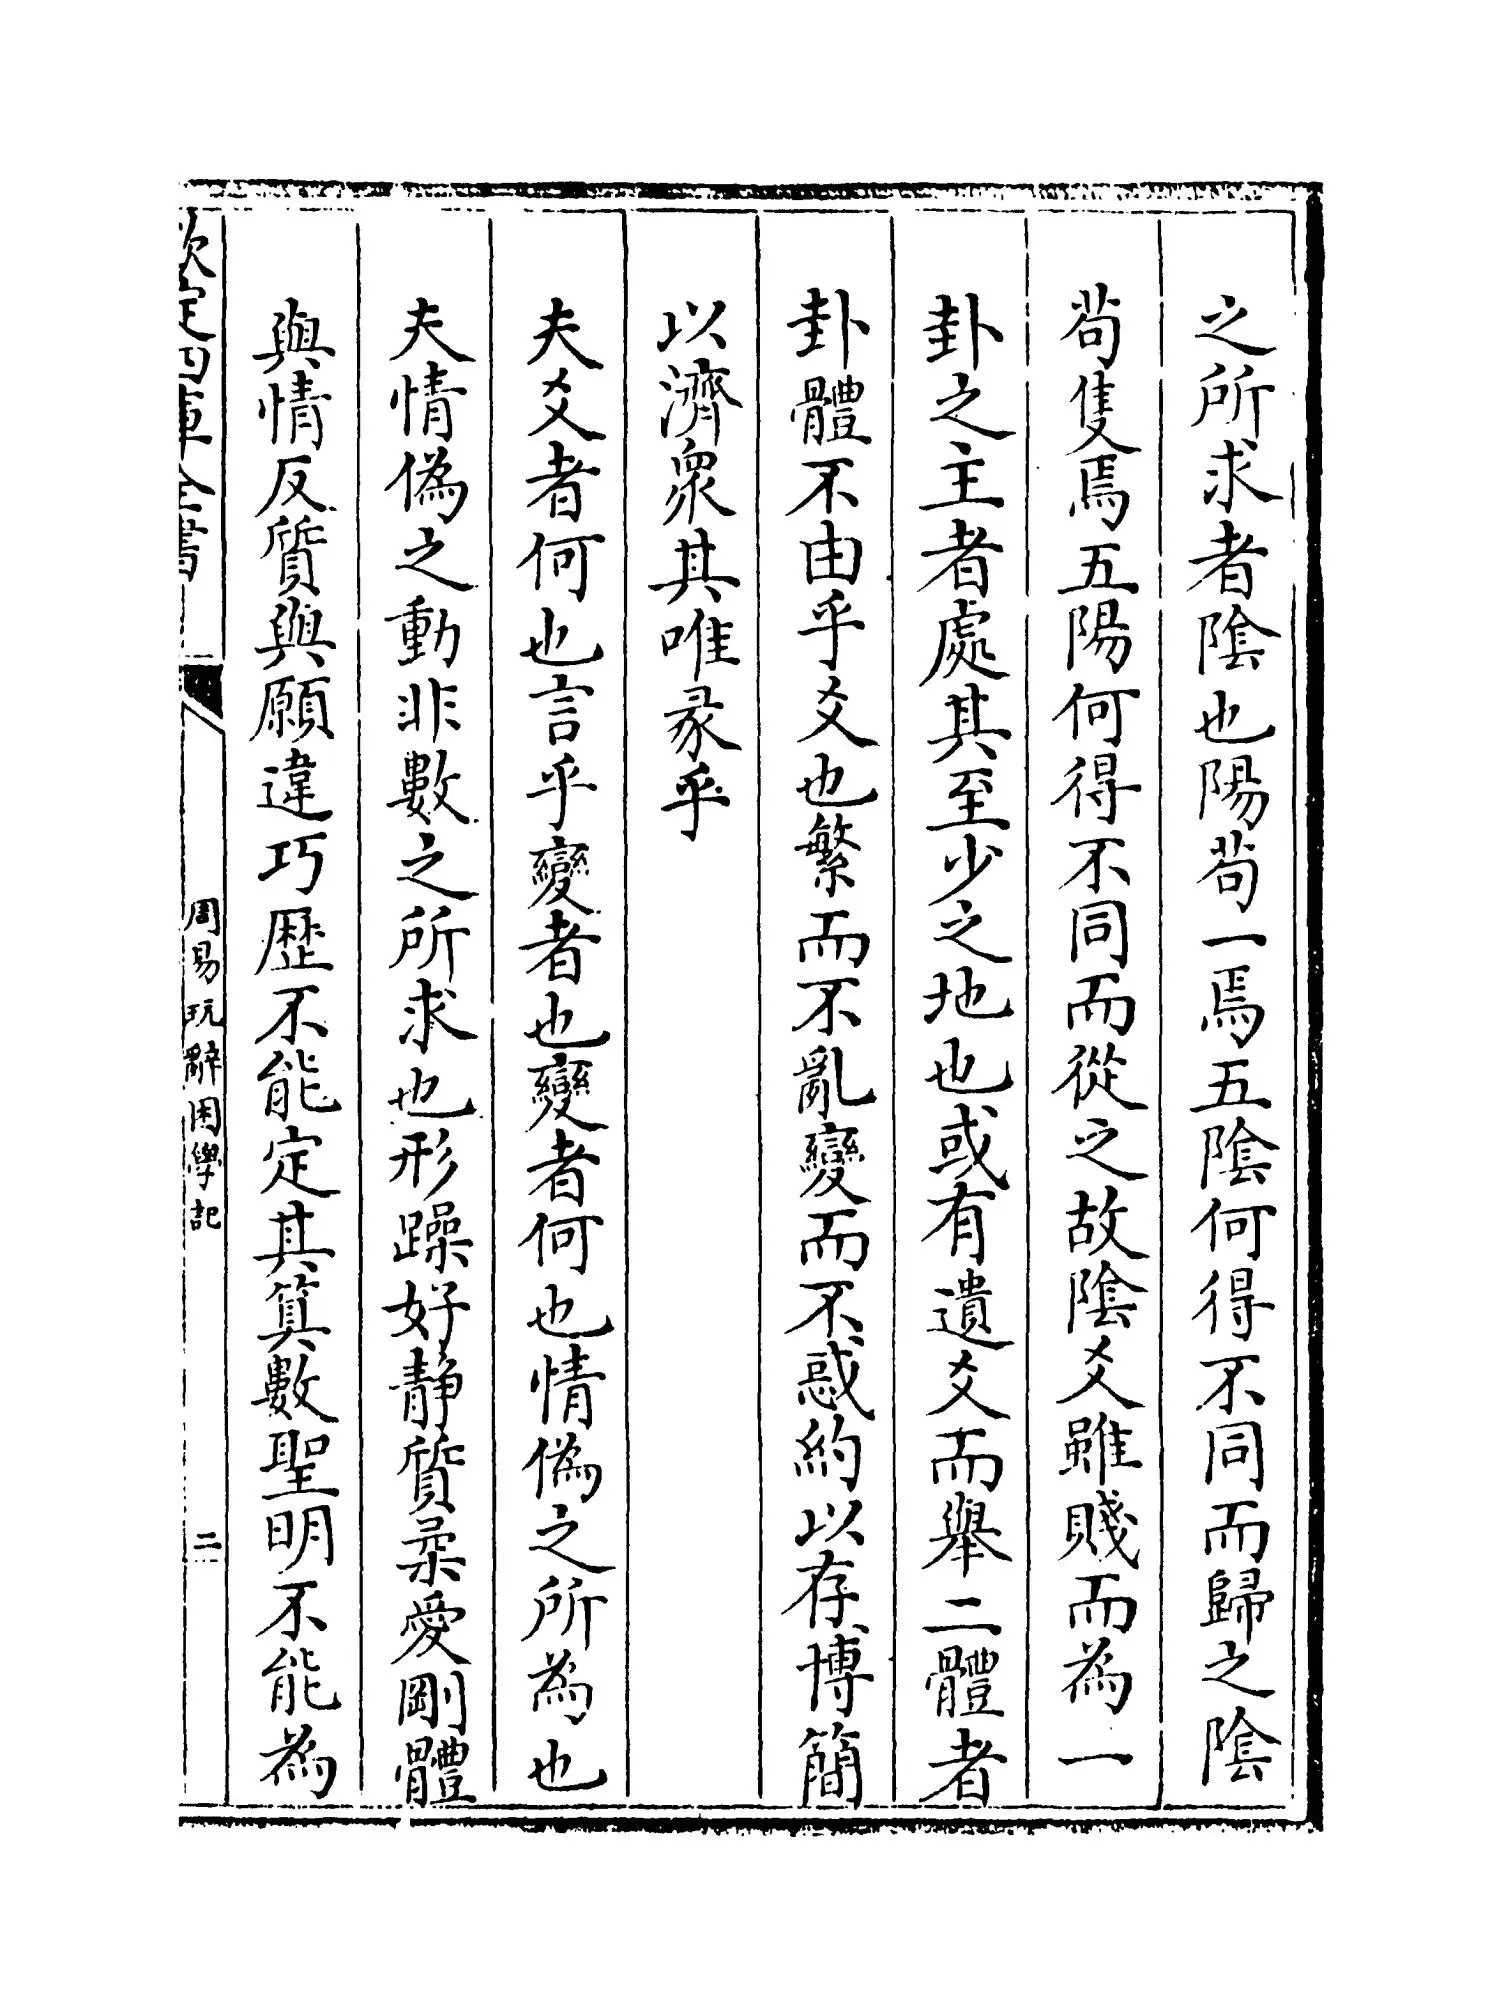 之所求者陰也陽茍一焉五陰何得不同而歸之陰
茍隻焉五陽何得不同而從之故陰爻雖賤而為一
卦之主者處其至少之地也或有遺爻而舉二體者
卦體不由乎爻也繁而不亂變而不惑約以存博簡
以濟衆其唯彖乎
夫爻者何也言乎變者也變者何也情偽之所為也
夫情偽之動非數之所求也形躁好靜質柔愛剛體
與情反質與願違巧歴不能定其算數聖明不能為
欽定四庫全書
周易玩辭困學記
二